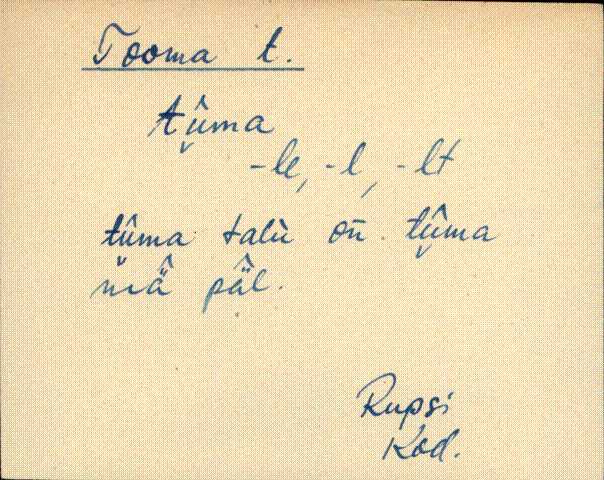 Tooma t.
tû̬ma
-le, -l, -lt
tû̬ma talù on̄ tû̬ma
mä̂ pä̂l.
Rupsi
Kod.